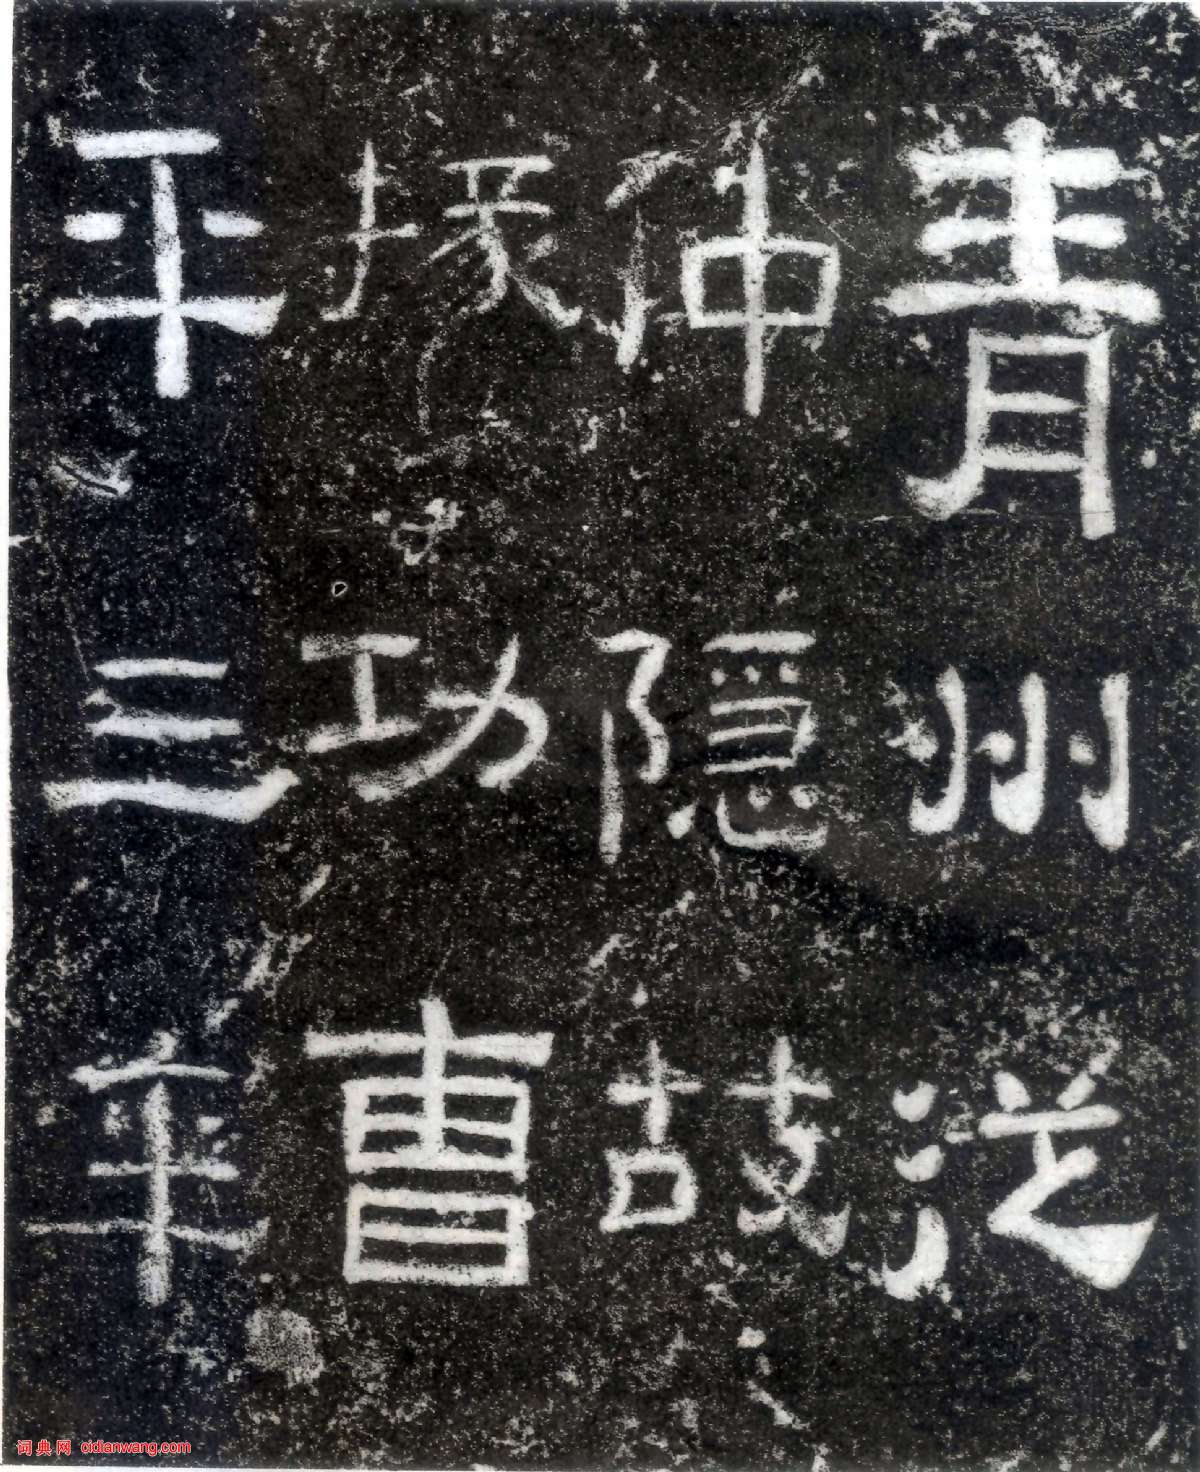 青州從
仲隱故
掾功曹
平三年
词典网 cidianwang.com